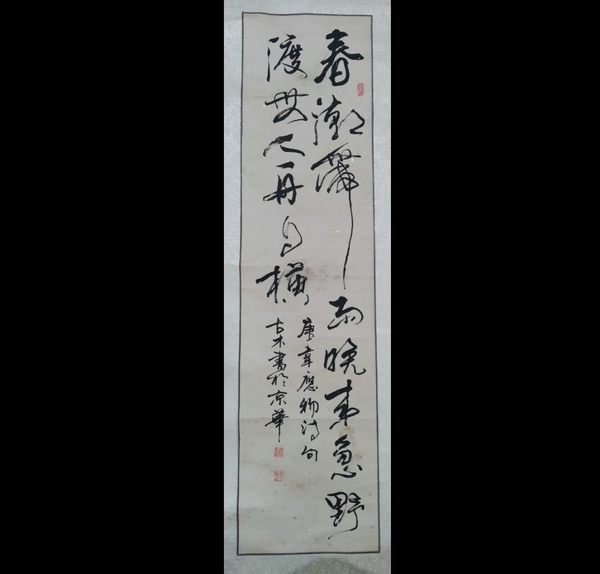 春潮帶雨晚來急野
渡無人舟自橫
唐韋應物詩句
古木書於京華